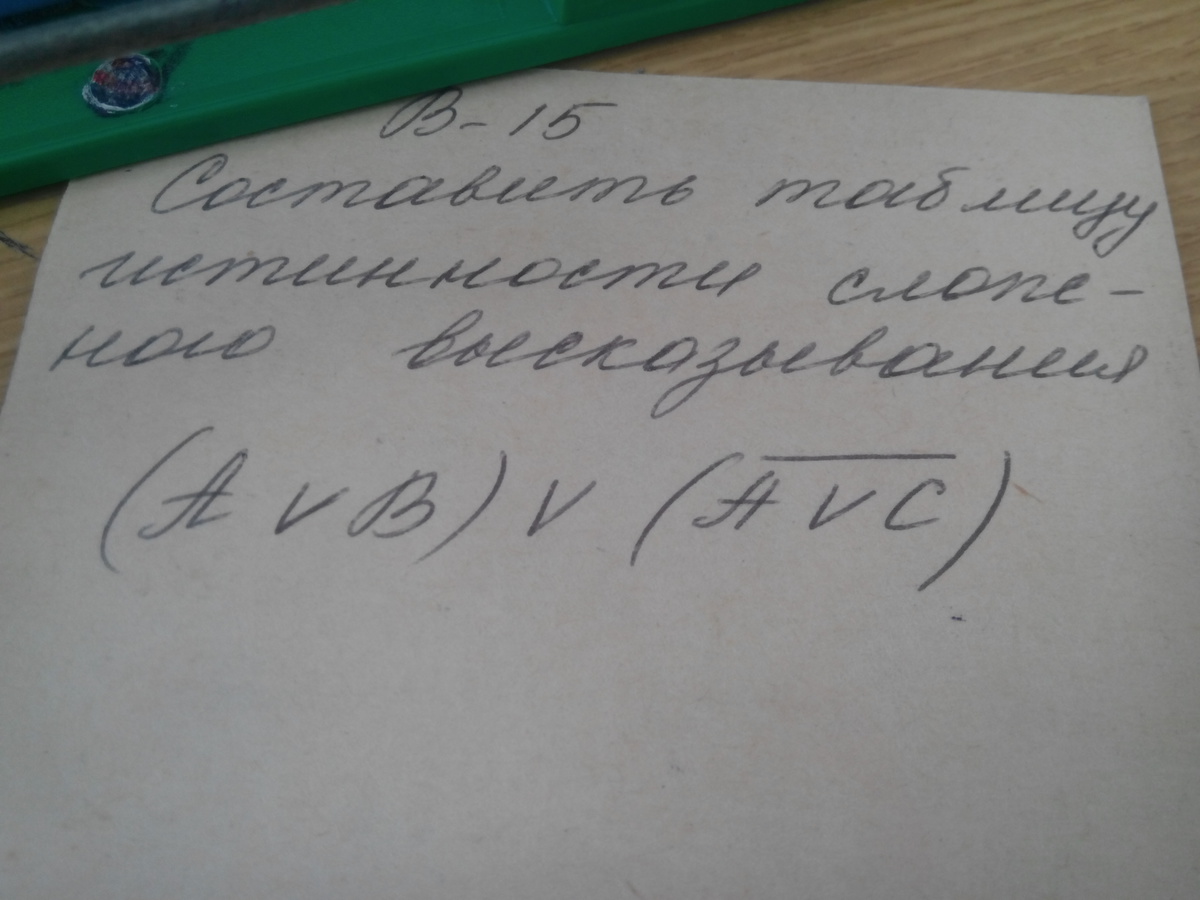 В-15
Составить таблицу
истинности слож-
ного высказывания
(A ∨ B) ∨ (A̅ ̅∨̅ ̅C̅)